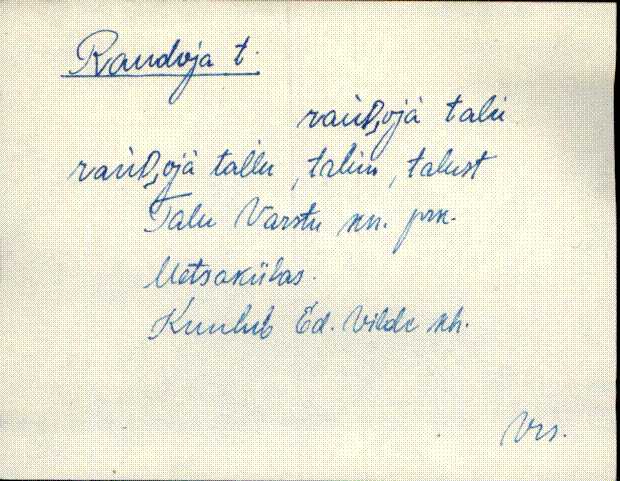 Raudoja t.
rauᴅ̦ojà talu
rauᴅ̦ojà tallu, talun, talust
Talu Varstu kn. prk.
Metsakülas.
Kuulub Ed. Vilde kh.
Vrs.